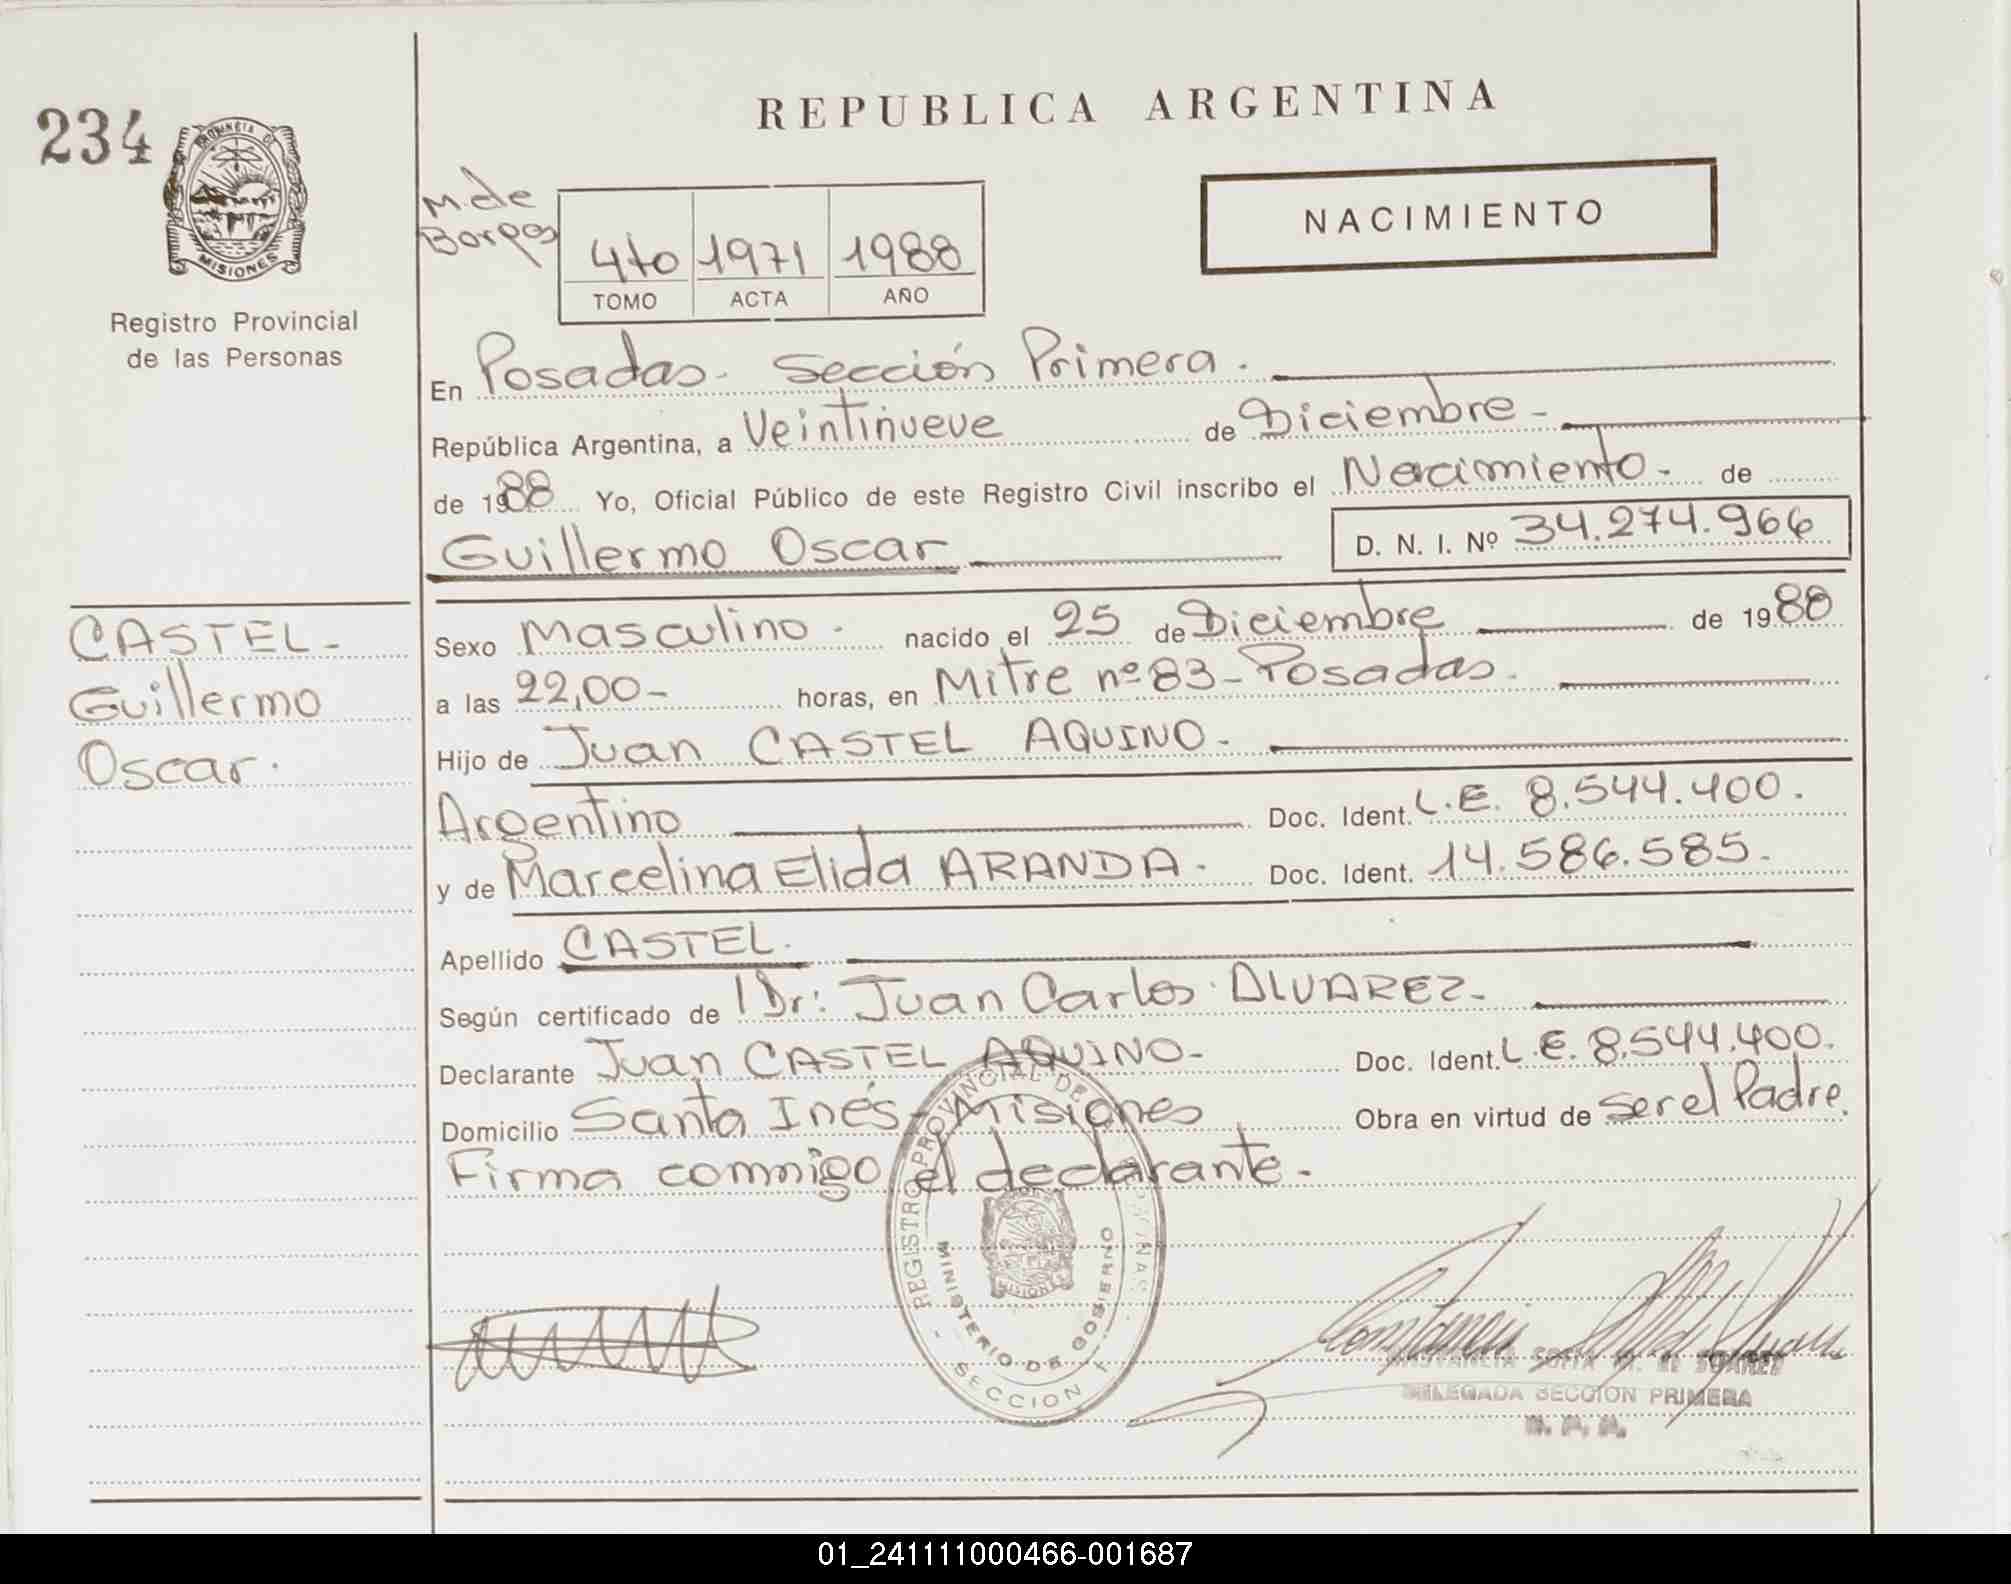 234
PROVINCIA DE
MISIONES
Registro Provincial
de las Personas
REPUBLICA ARGENTINA
M. de
Borges
4to 1971 1988
TOMO ACTA AÑO
NACIMIENTO
En Posadas. Sección Primera.
República Argentina, a Veintinueve de Diciembre -
de 1988 Yo, Oficial Público de este Registro Civil inscribo el Nacimiento - de
Guillermo Oscar D. N. I. Nº 34.274.966
CASTEL -
Guillermo
Oscar.
Sexo Masculino - nacido el 25 de Diciembre de 1988
a las 22,00 - horas, en Mitre nº 83 - Posadas.
Hijo de Juan CASTEL AQUINO -
Argentino Doc. Ident. L.E. 8.544.400.
y de Marcelina Elida ARANDA - Doc. Ident. 14.586.585.
Apellido CASTEL.
Según certificado de Dr: Juan Carlos ALVAREZ -
Declarante Juan CASTEL AQUINO - Doc. Ident. L.E. 8.544.400.
Domicilio Santa Inés - Misiones Obra en virtud de ser el Padre.
Firma conmigo el declarante -
REGISTRO PROVINCIAL DE LAS PERSONAS
MINISTERIO DE GOBIERNO
MISIONES
- SECCION 1 -
CONSTANCIA SOFIA M. DE SUAREZ
DELEGADA SECCION PRIMERA
01_241111000466-001687